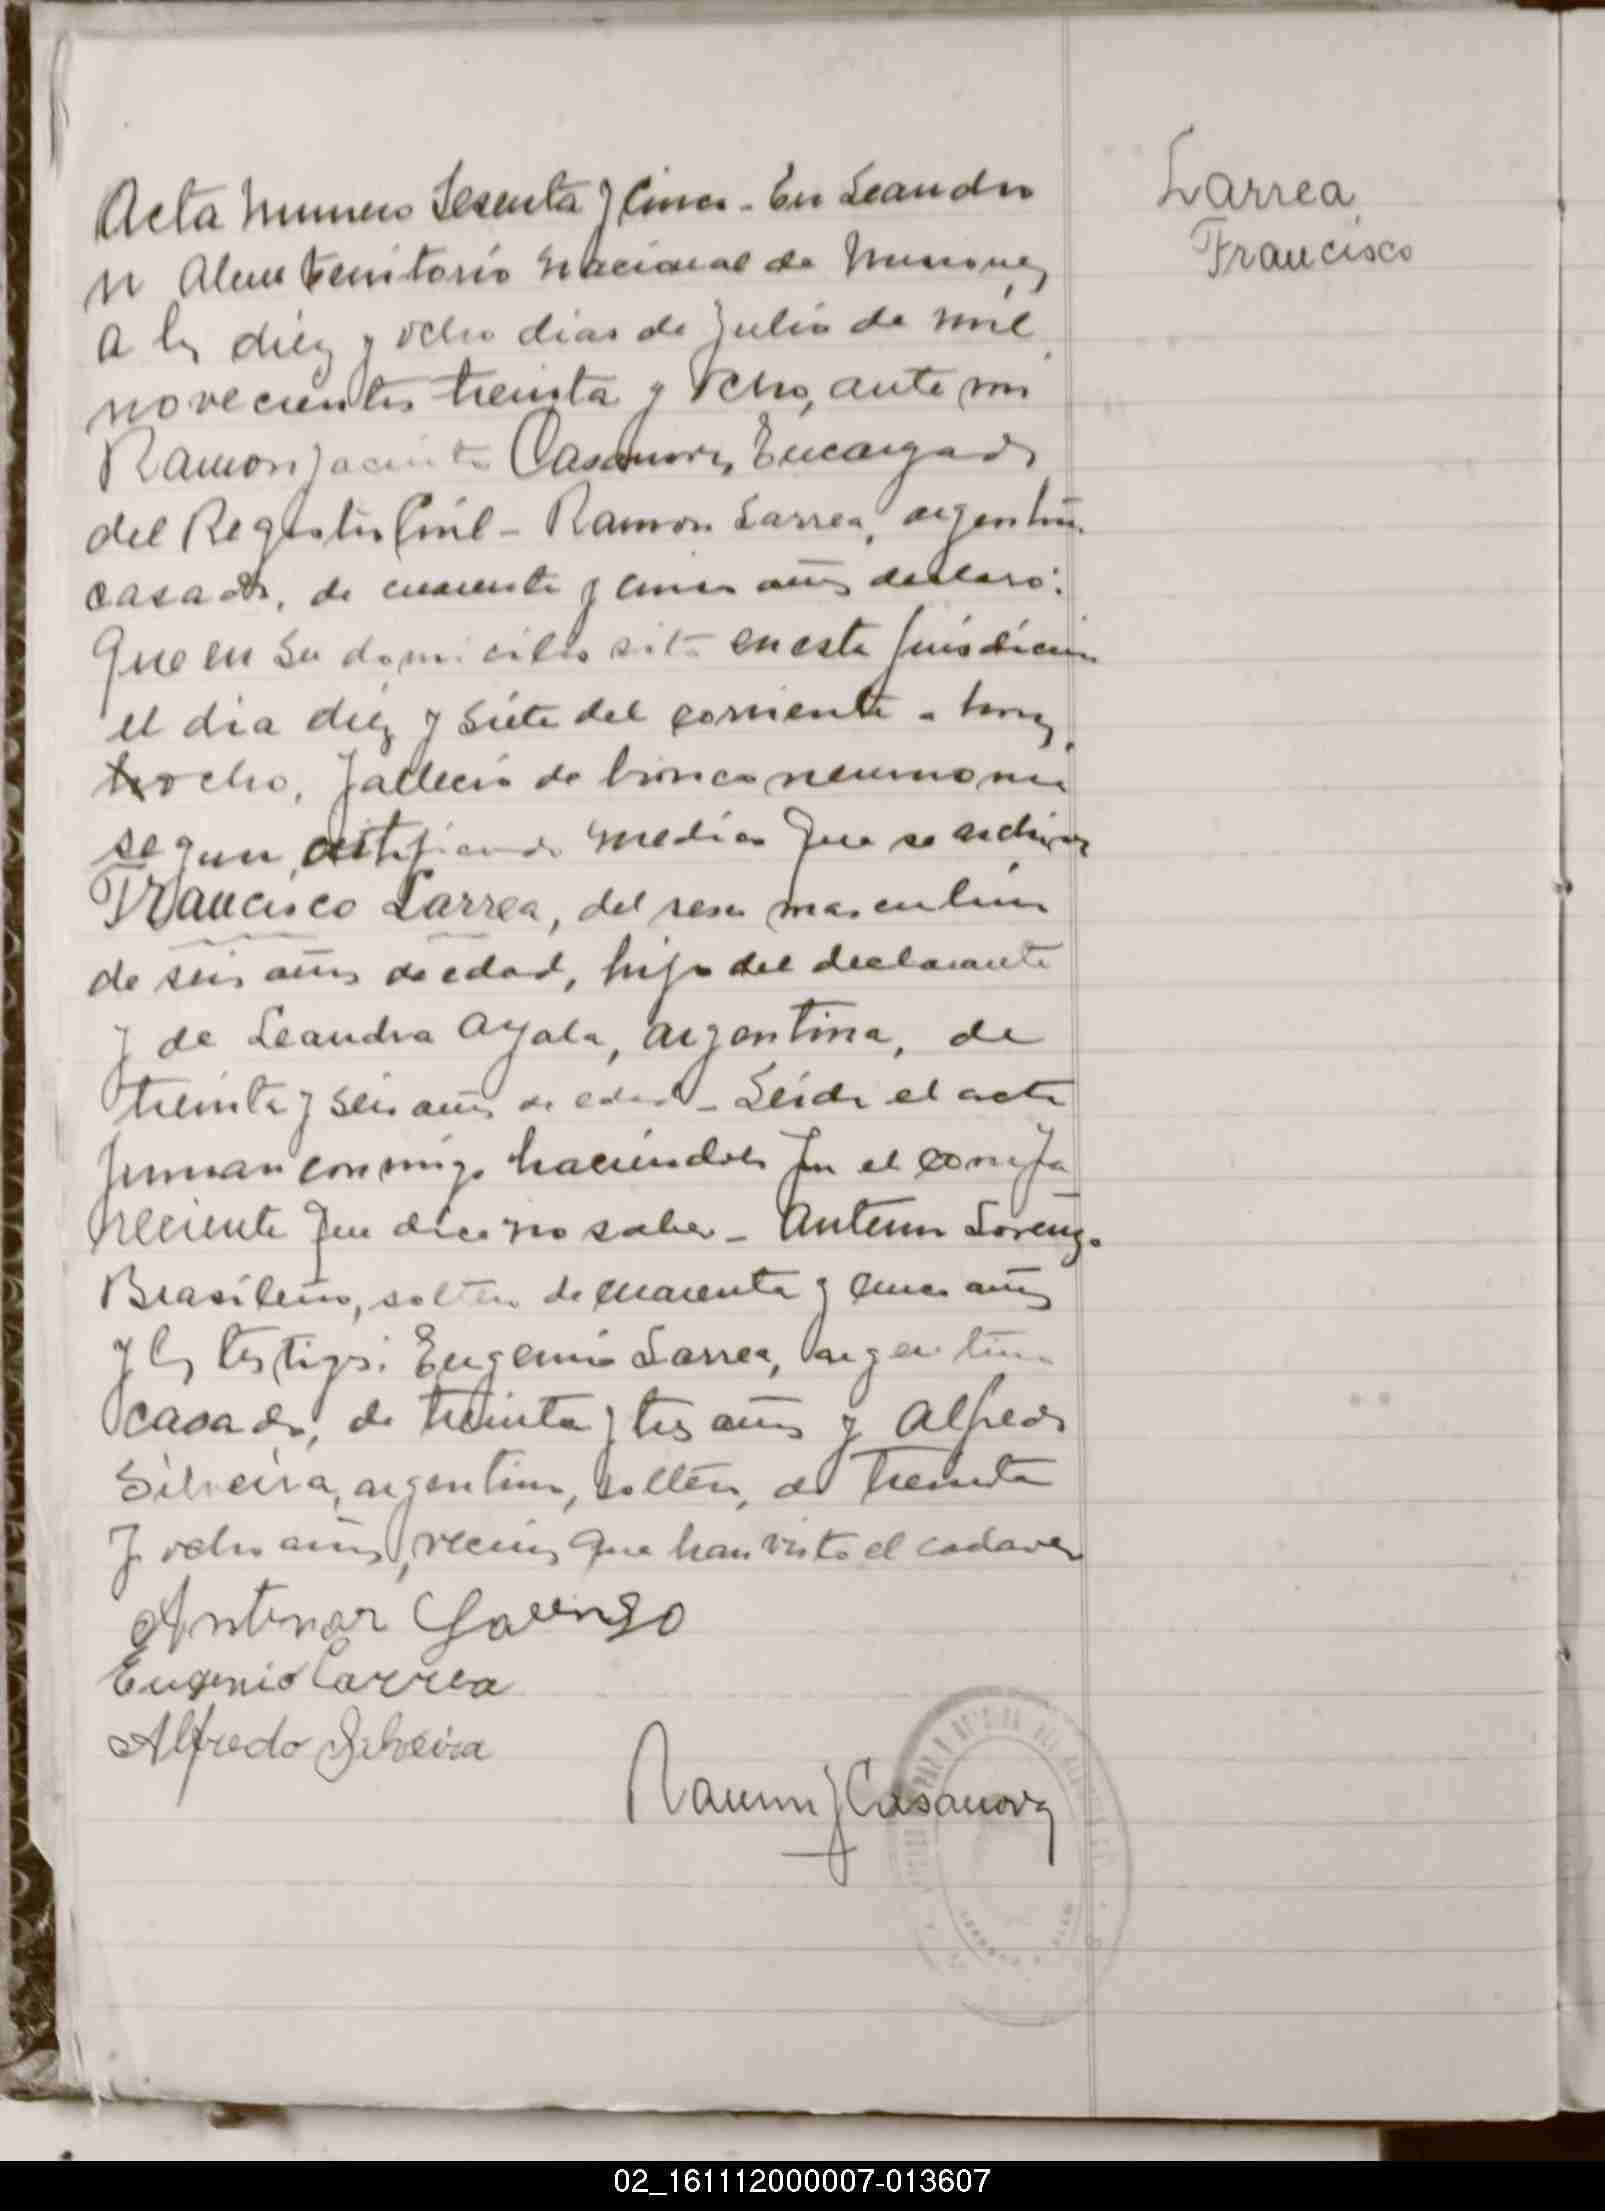 Acta Numero Sesenta y Cinco - En Leandro
N Alem Territorio Nacional de Misiones,
a los diez y ocho dias de Julio de mil
novecientos treinta y ocho, ante mi
Ramon Jacinto Casanova, Encargado
del Registro Civil - Ramon Larrea, argentino
casado, de cuarenta y cinco años declaró:
Que en su domicilio sito en esta jurisdicion
el dia diez y siete del corriente a horas
ocho, fallecio de bronconeumonia
segun certificado medico que se archiva
Francisco Larrea, del sexo masculino
de seis años de edad, hijo del declarante
y de Leandra Ayala, argentina, de
treinta y seis años de edad - Leida el acta
firman conmigo haciendolo por el compa
reciente que dice no saber - Antenor Lorenzo
Brasileño, soltero de cuarenta y cinco años
y los testigos: Eugenio Larrea, argentino
casado, de treinta y tres años y Alfredo
Silveira, argentino, soltero, de treinta
y ocho años, vecinos que han visto el cadaver
Antenor Lorenzo
Eugenio Larrea
Alfredo Silveira
Ramon J Casanova
Larrea
Francisco
02_161112000007-013607